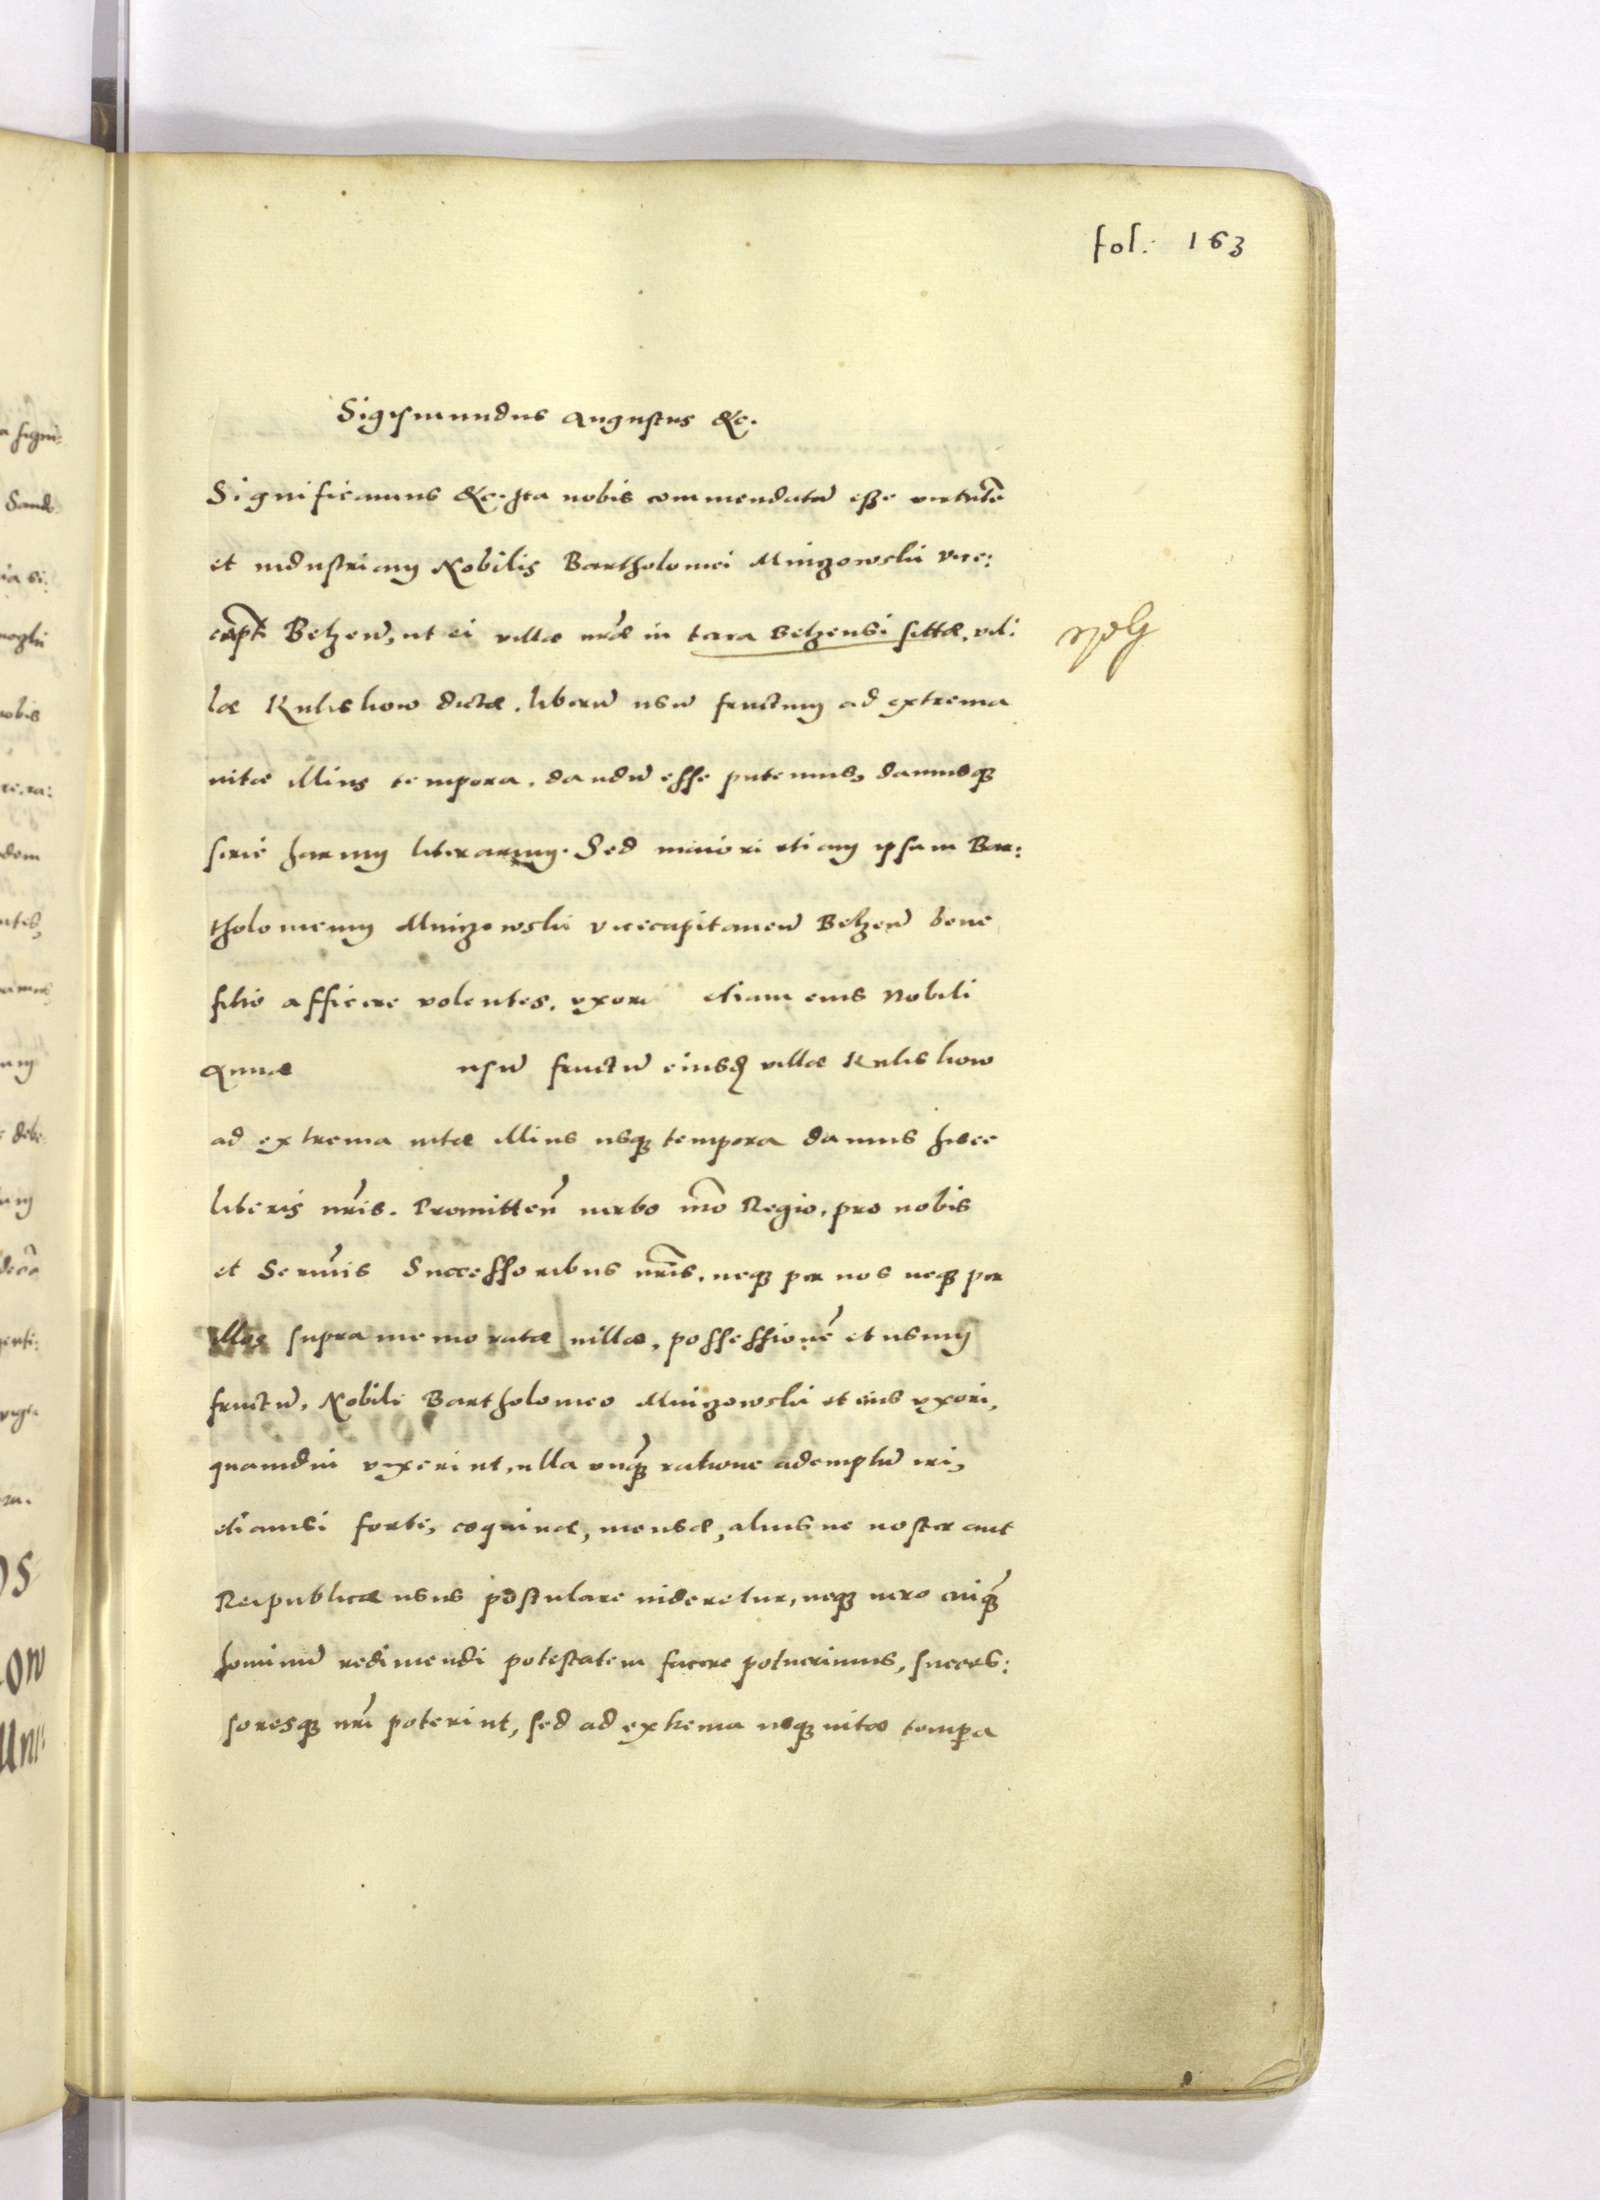 fol. 163
Sigismundus Augustus &c.
Significamus &c. Ita nobis commendatũ esse virtutẽ
et industriam Nobilis Bartholomei Mnigowski vice:
capit̃. Belzeñ, ut ei villæ nr̃æ in terra Belzensi sittæ, vil:
læ Kulishow dictæ, liberũ usũ fructum ad extrema
vitæ illius tempora, dandũ esse putemus, damusq;
serie harum literarum. Sed maiori etiam ipsum Bar:
tholomeum Mnigowski vicecapitaneũ Belzeñ bene
fitio afficere volentes, uxori etiam eius Nobili
Annæ usũ fructũ eiusd villæ Kulishow
ad extrema vitæ illius usq; tempora damus hisce
literis nr̃is. Promitteñ verbo nr̃o Regio, pro nobis
et Serm̃is Successoribus nr̃is, neq; per nos neq; per
illos supra memoratæ villæ, possessionẽ et usum
fructũ, Nobili Bartholomeo Mnigowski et eius uxori,
quamdiu vixerint, ulla unq̃ ratione ademptũ iri,
etiamsi forte, coquinæ, mensæ, aliusne noster aut
Reipublicæ usus postulare videretur, neq; vero cuiq̃
hominũ redimendi potestatem facere poterimus, succes:
soresq; nr̃i poterint, sed ad extrema usq; vitæ tempa